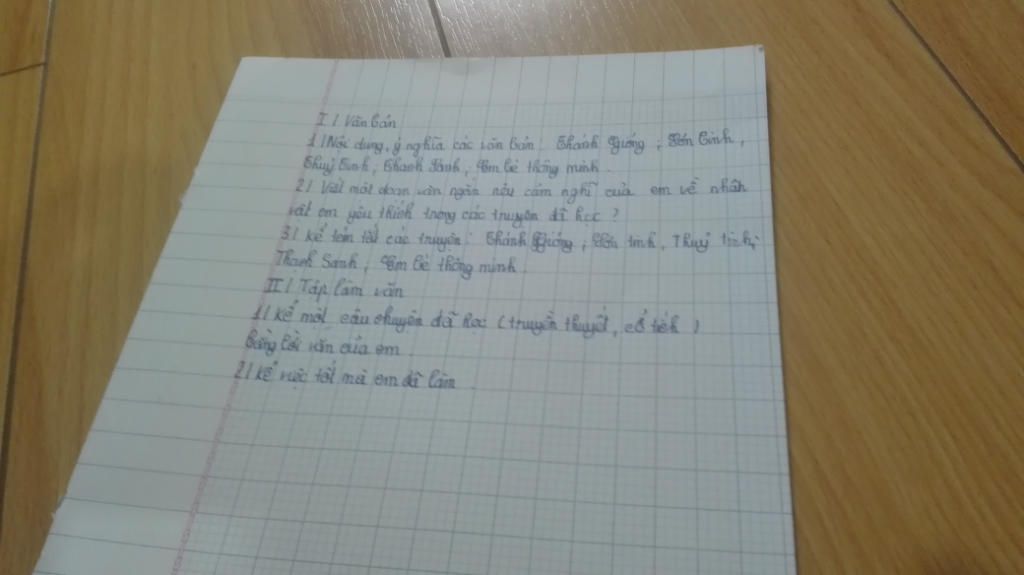 I / Văn bản
1 / Nội dung, ý nghĩa các văn bản: Thánh Gióng ; Sơn Tinh,
Thuỷ Tinh, Thạch Sanh ; Em bé thông minh.
2 / Viết một đoạn văn ngắn nêu cảm nghĩ của em về nhân
vật em yêu thích trong các truyện đã học ?
3 / Kể tóm tắt các truyện: Thánh Gióng ; Sơn tinh, Thuỷ tinh ;
Thạch Sanh ; Em bé thông minh.
II / Tập làm văn
1 / Kể một câu chuyện đã học ( truyền thuyết, cổ tích )
bằng lời văn của em.
2 / Kể việc tốt mà em đã làm.